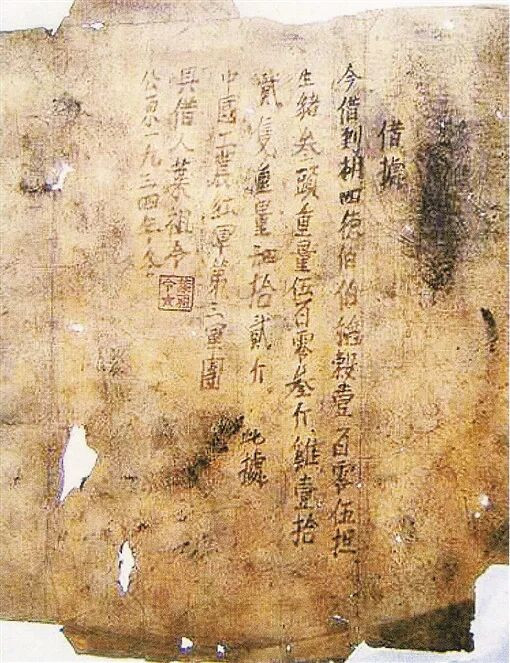 借據
今借到胡四德伯伯稻穀壹百零伍担
生豬叁頭重量伍百零叁斤、雞壹拾
貳隻重量肆拾貳斤。此據
中國工農紅軍第三軍團
具借人葉祖令
公原一九三四年冬
葉祖令